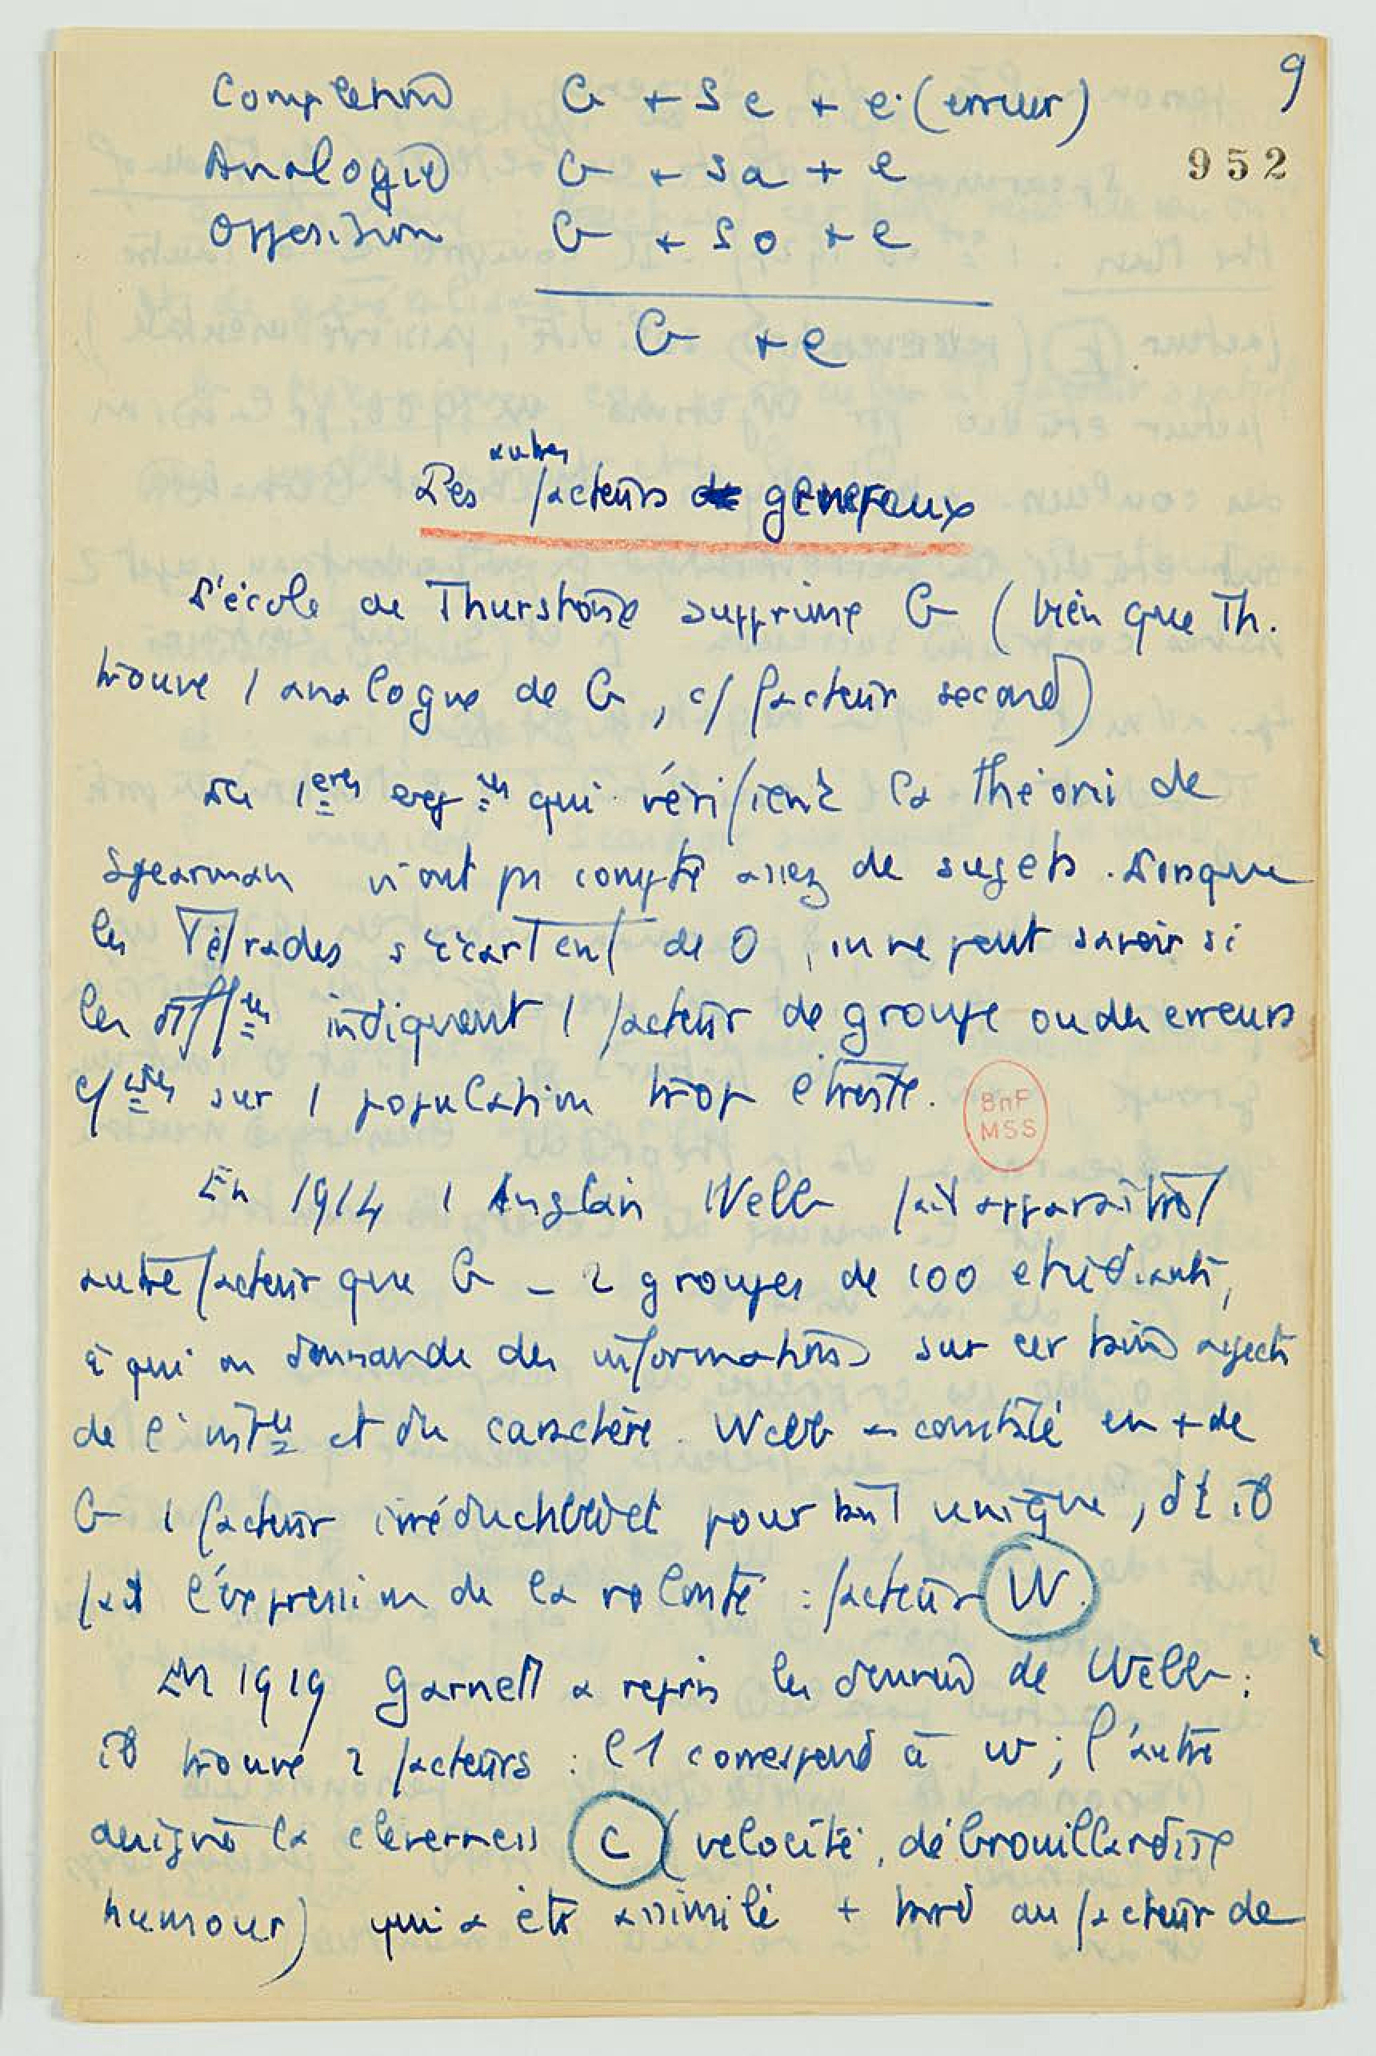 9
Completion G + Sc + e (erreur)
952
Analogie G + Sa + e
Opposition G + So + e
G + e
autres
Les facteurs de généraux
L'école de Thurstone supprime G (bien que Th.
trouve 1 analogue de G, c/ facteur second)
Les 1eres exp ces qui vérifient la théorie de
Spearman n'ont pas compté assez de sujets. Lorsque
les Tétrades s'écartent de 0, on ne peut savoir si
les diff ces indiquent 1 facteur de groupe ou des erreurs
sur 1 population trop étroite.
BnF
MSS
En 1914 1 Anglais Webb fait apparaître 1
autre facteur que G – 2 groupes de 100 étudiants,
à qui on demande des informations sur certains aspects
de l'int ce et du caractère. Webb a constaté en + de
G 1 facteur irréductible et pour but unique, dt il
fait l'expression de la volonté : facteur W.
En 1919 Garnett a repris les données de Webb :
il trouve 2 facteurs : l'1 correspond à w ; l'autre
désigne la cleverness C (vélocité, débrouillardise
humour) qui a été assimilé + tard au facteur de